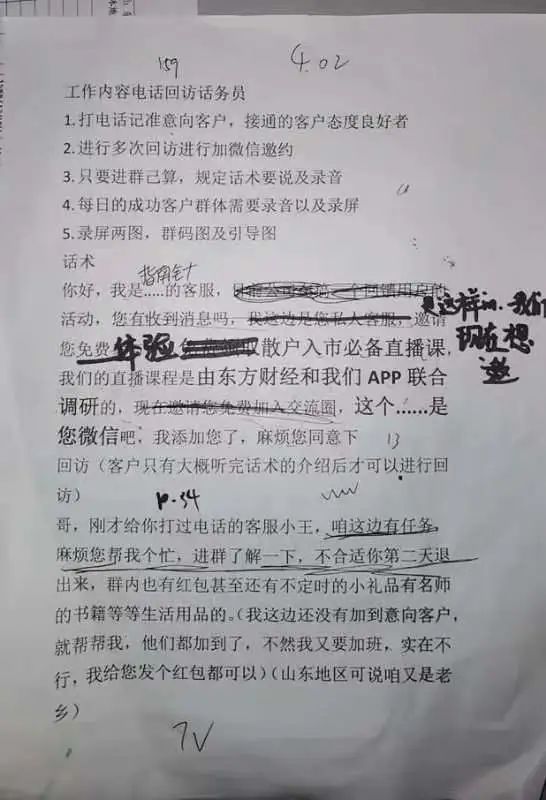 159 4.02
工作内容电话回访话务员
1.打电话记准意向客户，接通的客户态度良好者
2.进行多次回访进行加微信邀约
3.只要进群己算，规定话术要说及录音
4.每日的成功客户群体需要录音以及录屏
5.录屏两图，群码图及引导图
话术
指南针
你好，我是……的客服，
活动，您有收到消息吗，我这边是您私人客服，邀请
是这样的、我们
现在想
邀
您免费体验散户入市必备直播课，
我们的直播课程是由东方财经和我们 APP 联合
调研的，现在邀请您免费加入交流圈，这个……是
您微信吧，我添加您了，麻烦您同意下
13
回访（客户只有大概听完话术的介绍后才可以进行回
访）
哥，刚才给你打过电话的客服小王，咱这边有任务，
麻烦您帮我个忙，进群了解一下，不合适你第二天退
出来，群内也有红包甚至还有不定时的小礼品有名师
的书籍等等生活用品的。（我这边还没有加到意向客户，
就帮帮我，他们都加到了，不然我又要加班，实在不
行，我给您发个红包都可以）（山东地区可说咱又是老
乡）